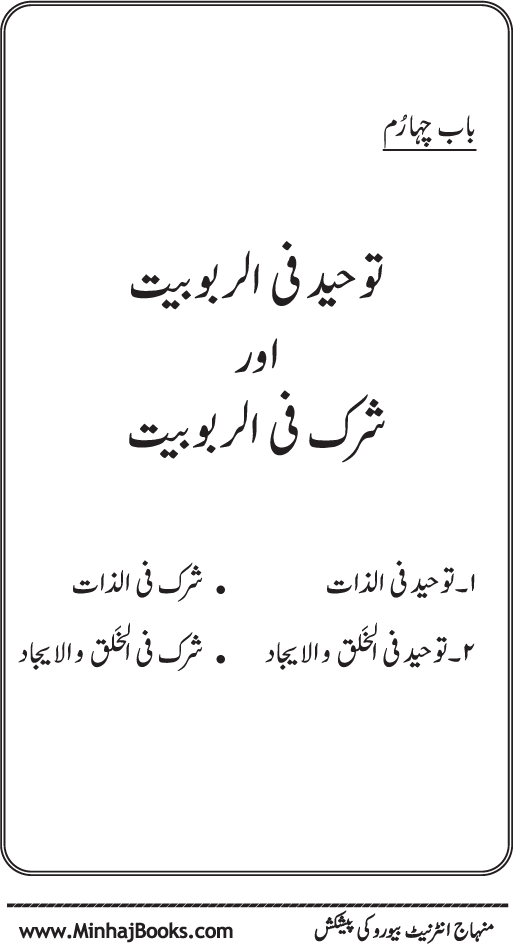 باب چہارُم
توحید فی الربوبیت
اور
شرک فی الربوبیت
۱۔توحید فی الذات • شرک فی الذات
۲۔توحید فی الخَلق والایجاد • شرک فی الخَلق والایجاد
منہاج انٹرنیٹ بیورو کی پیشکش www.MinhajBooks.com